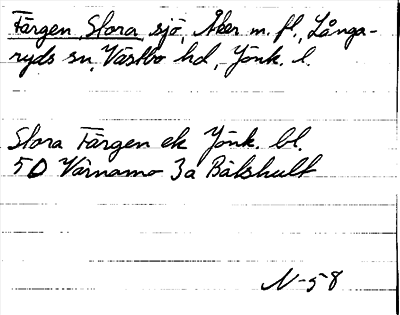 Färgen, Stora, sjö, Åker m. fl., Långa-
ryds sn, Västbo hd, Jönk. l.
Stora Färgen ek Jönk. bl.
5D Värnamo 3a Båtshult
N-58